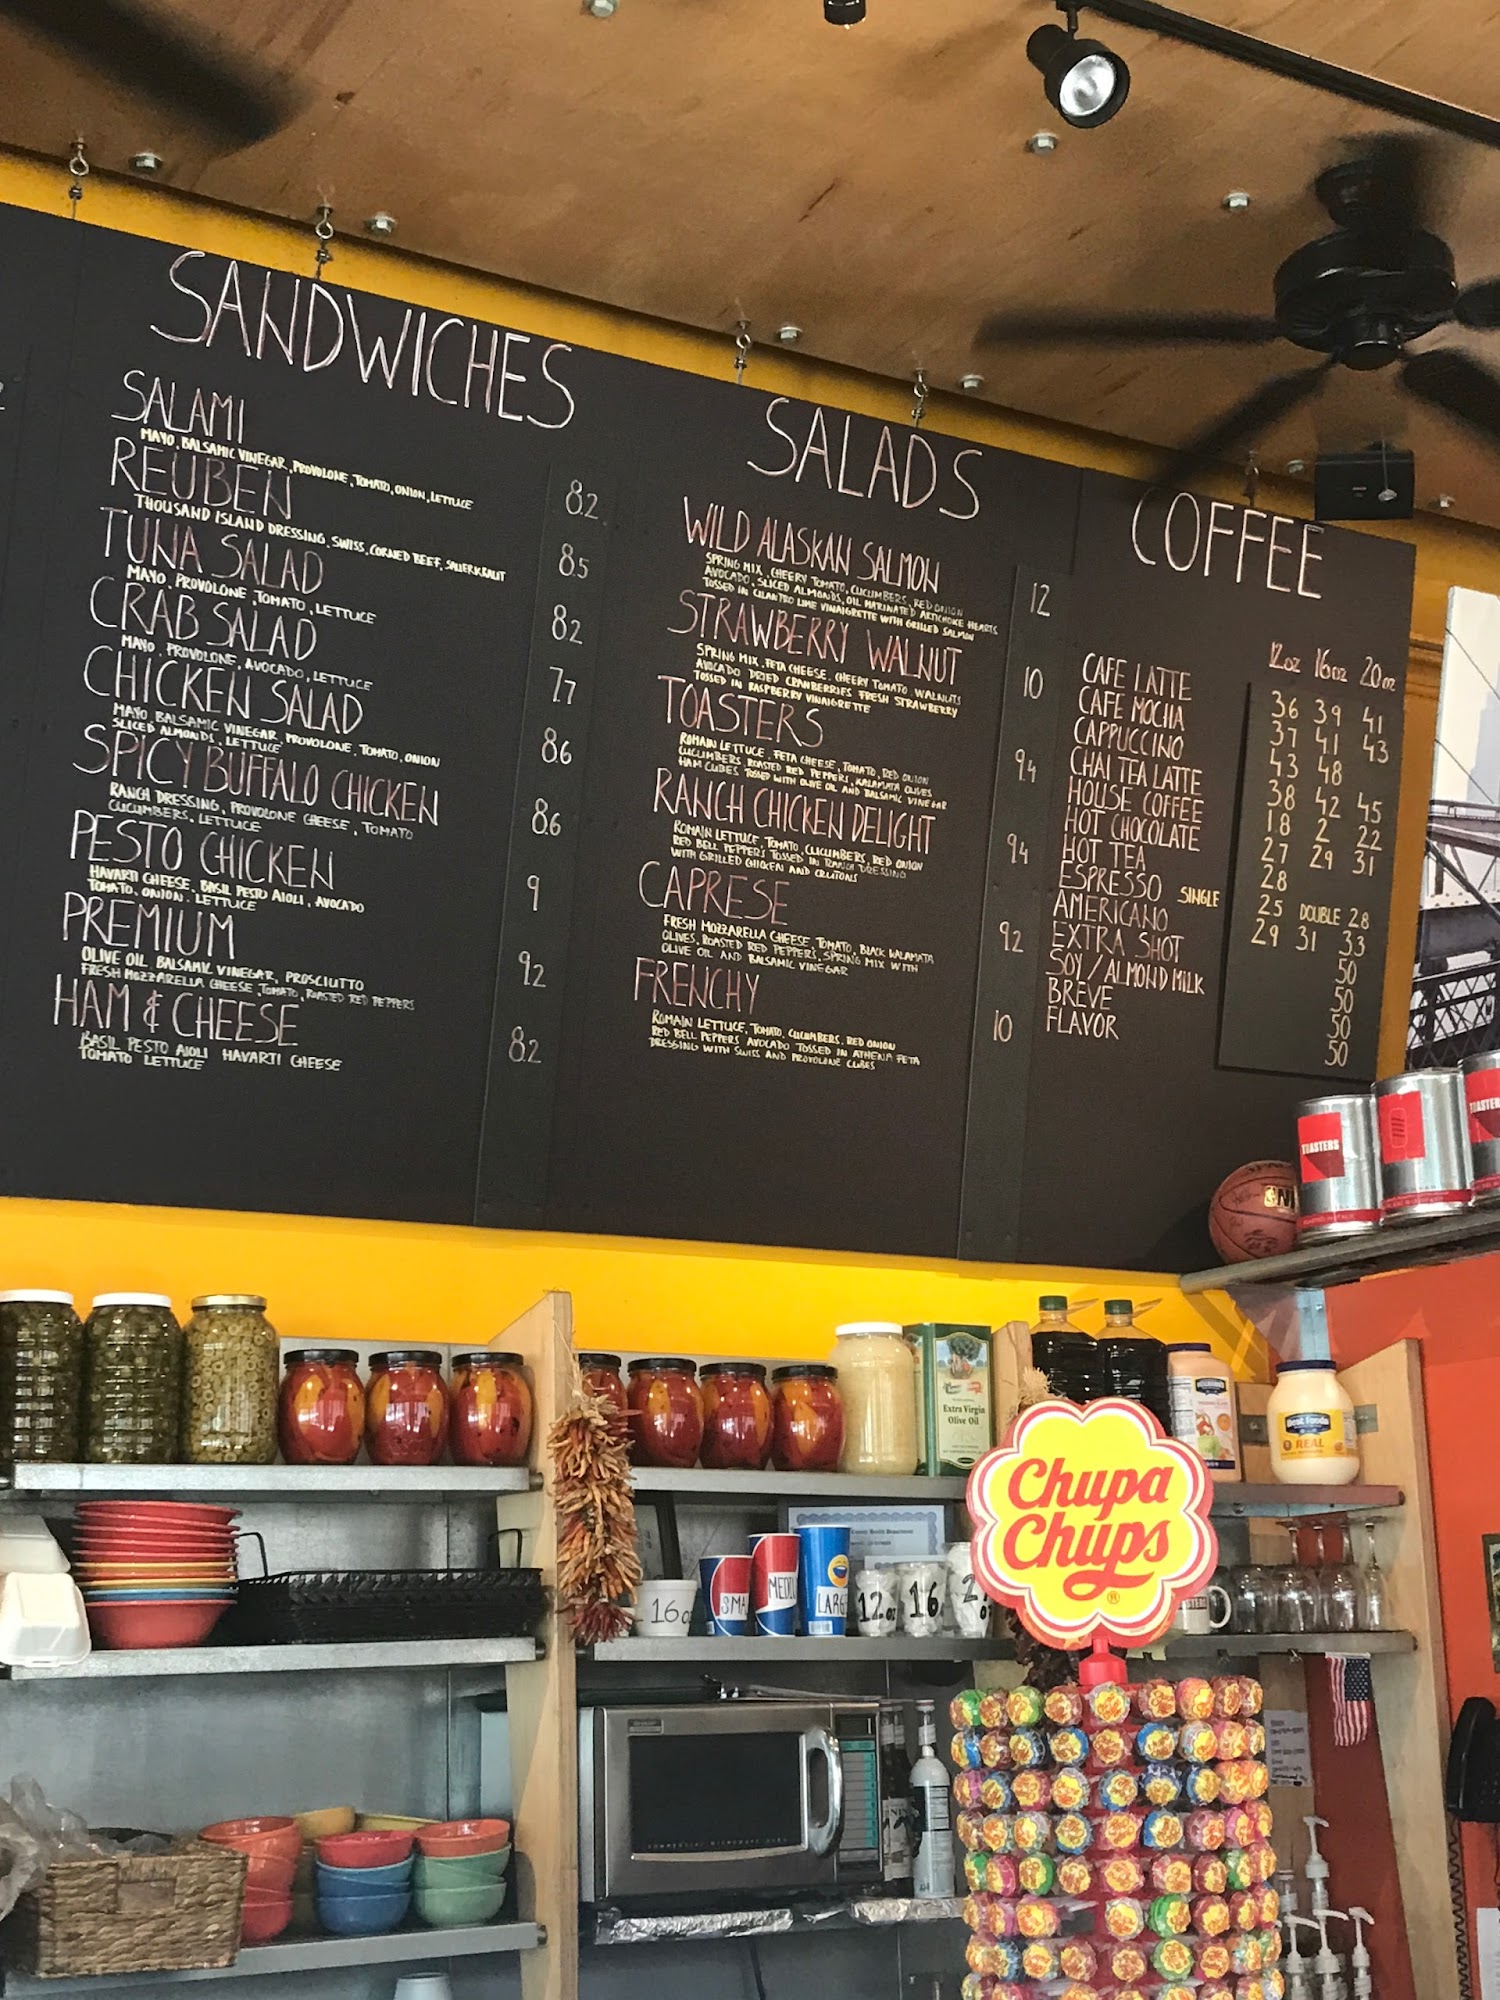 SANDWICHES
SALAMI
MAYO, BALSAMIC VINEGAR, PROVOLONE, TOMATO, ONION, LETTUCE
8.2
REUBEN
THOUSAND ISLAND DRESSING, SWISS, CORNED BEEF, SAUERKRAUT
8.5
TUNA SALAD
MAYO, PROVOLONE, TOMATO, LETTUCE
8.2
CRAB SALAD
MAYO, PROVOLONE, AVOCADO, LETTUCE
7.7
CHICKEN SALAD
MAYO, BALSAMIC VINEGAR, PROVOLONE, TOMATO, ONION
SLICED ALMONDS, LETTUCE
8.6
SPICY BUFFALO CHICKEN
RANCH DRESSING, PROVOLONE CHEESE, TOMATO
CUCUMBERS, LETTUCE
8.6
PESTO CHICKEN
HAVARTI CHEESE, BASIL PESTO AIOLI, AVOCADO
TOMATO, ONION, LETTUCE
9
PREMIUM
OLIVE OIL, BALSAMIC VINEGAR, PROSCIUTTO
FRESH MOZZARELLA CHEESE, TOMATO, ROASTED RED PEPPERS
9.2
HAM & CHEESE
BASIL PESTO AIOLI HAVARTI CHEESE
TOMATO LETTUCE
8.2
SALADS
WILD ALASKAN SALMON
SPRING MIX, CHEERY TOMATO, CUCUMBERS, RED ONION
AVOCADO, SLICED ALMONDS, OIL MARINATED ARTICHOKE HEARTS
TOSSED IN CILANTRO LIME VINAIGRETTE WITH GRILLED SALMON
12
STRAWBERRY WALNUT
SPRING MIX, FETA CHEESE, CHEERY TOMATO, WALNUTS
AVOCADO DRIED CRANBERRIES FRESH STRAWBERRY
TOSSED IN RASPBERRY VINAIGRETTE
10
TOASTERS
ROMAIN LETTUCE, FETA CHEESE, TOMATO, RED ONION
CUCUMBERS, ROASTED RED PEPPERS, KALAMATA OLIVES
HAM CUBES TOSSED WITH OLIVE OIL AND BALSAMIC VINEGAR
9.4
RANCH CHICKEN DELIGHT
ROMAIN LETTUCE, TOMATO, CUCUMBERS, RED ONION
RED BELL PEPPERS TOSSED IN RANCH DRESSING
WITH GRILLED CHICKEN AND CRUTONS
9.4
CAPRESE
FRESH MOZZARELLA CHEESE, TOMATO, BLACK KALAMATA
OLIVES, ROASTED RED PEPPERS, SPRING MIX WITH
OLIVE OIL AND BALSAMIC VINEGAR
9.2
FRENCHY
ROMAIN LETTUCE, TOMATO, CUCUMBERS, RED ONION
RED BELL PEPPERS AVOCADO TOSSED IN ATHENA FETA
DRESSING WITH SWISS AND PROVOLONE CUBES
10
COFFEE
12oz 16oz 20oz
CAFE LATTE 3.6 3.9 4.1
CAFE MOCHA 3.7 4.1 4.3
CAPPUCCINO 4.3 4.8
CHAI TEA LATTE 3.8 4.2 4.5
HOUSE COFFEE 1.8 2 2.2
HOT CHOCOLATE 2.7 2.9 3.1
HOT TEA 2.8
ESPRESSO SINGLE 2.5 DOUBLE 2.8
AMERICANO 2.9 3.1 3.3
EXTRA SHOT 50
SOY / ALMOND MILK 50
BREVE 50
FLAVOR 50
TOASTERS
TOASTER
Extra Virgin
Olive Oil
Best Foods
REAL
Chupa
Chups
16oz
LARG
12oz
16
COMMERCIAL MICROWAVE OVEN